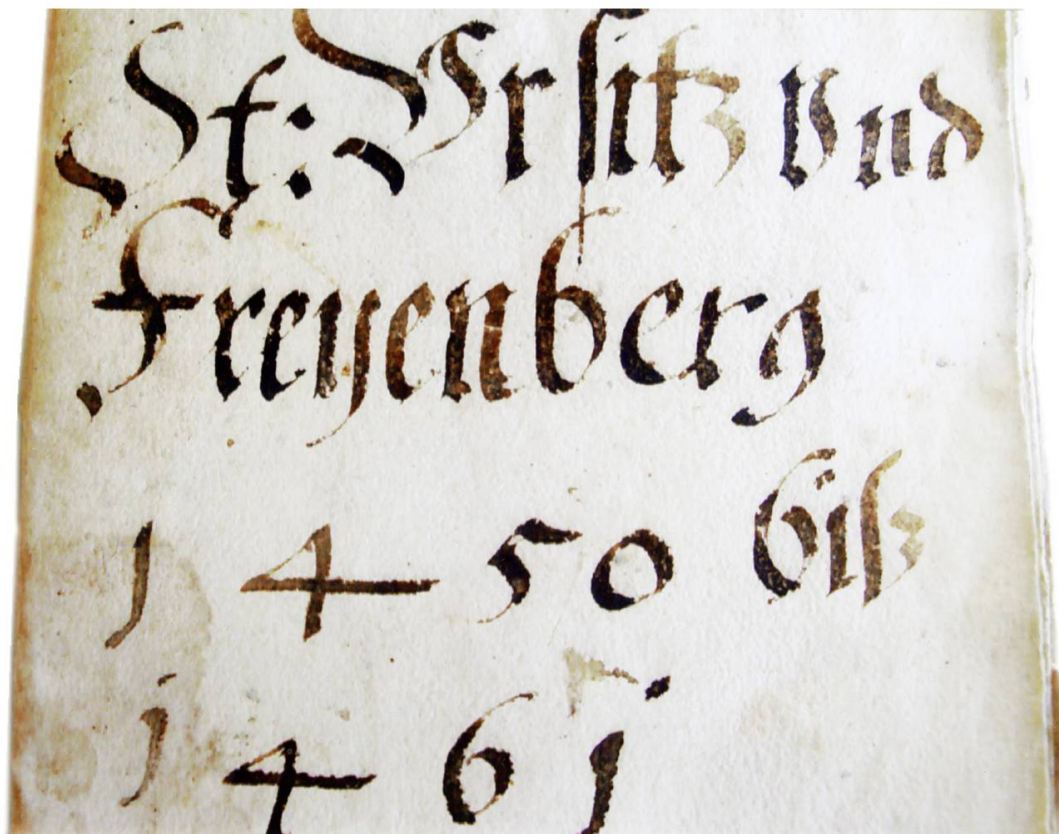 St: Vrsitz Vnd
Freyenberg
1450 biß
1461